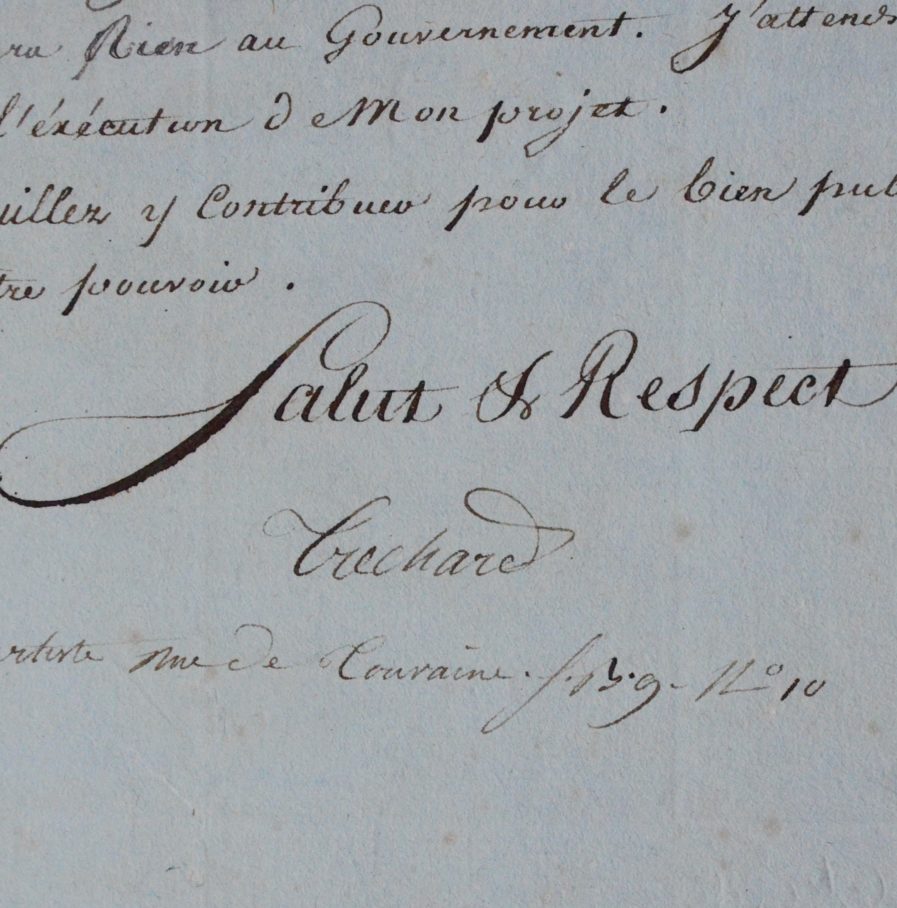 ra Rien au Gouvernement. J'attends
l'éxécution de Mon projet.
uillez y Contribuer pour le bien pub
tre pouvoir.
Salut & Respect
Trechard
artiste rue de Touraine. f. B. g. N° 10